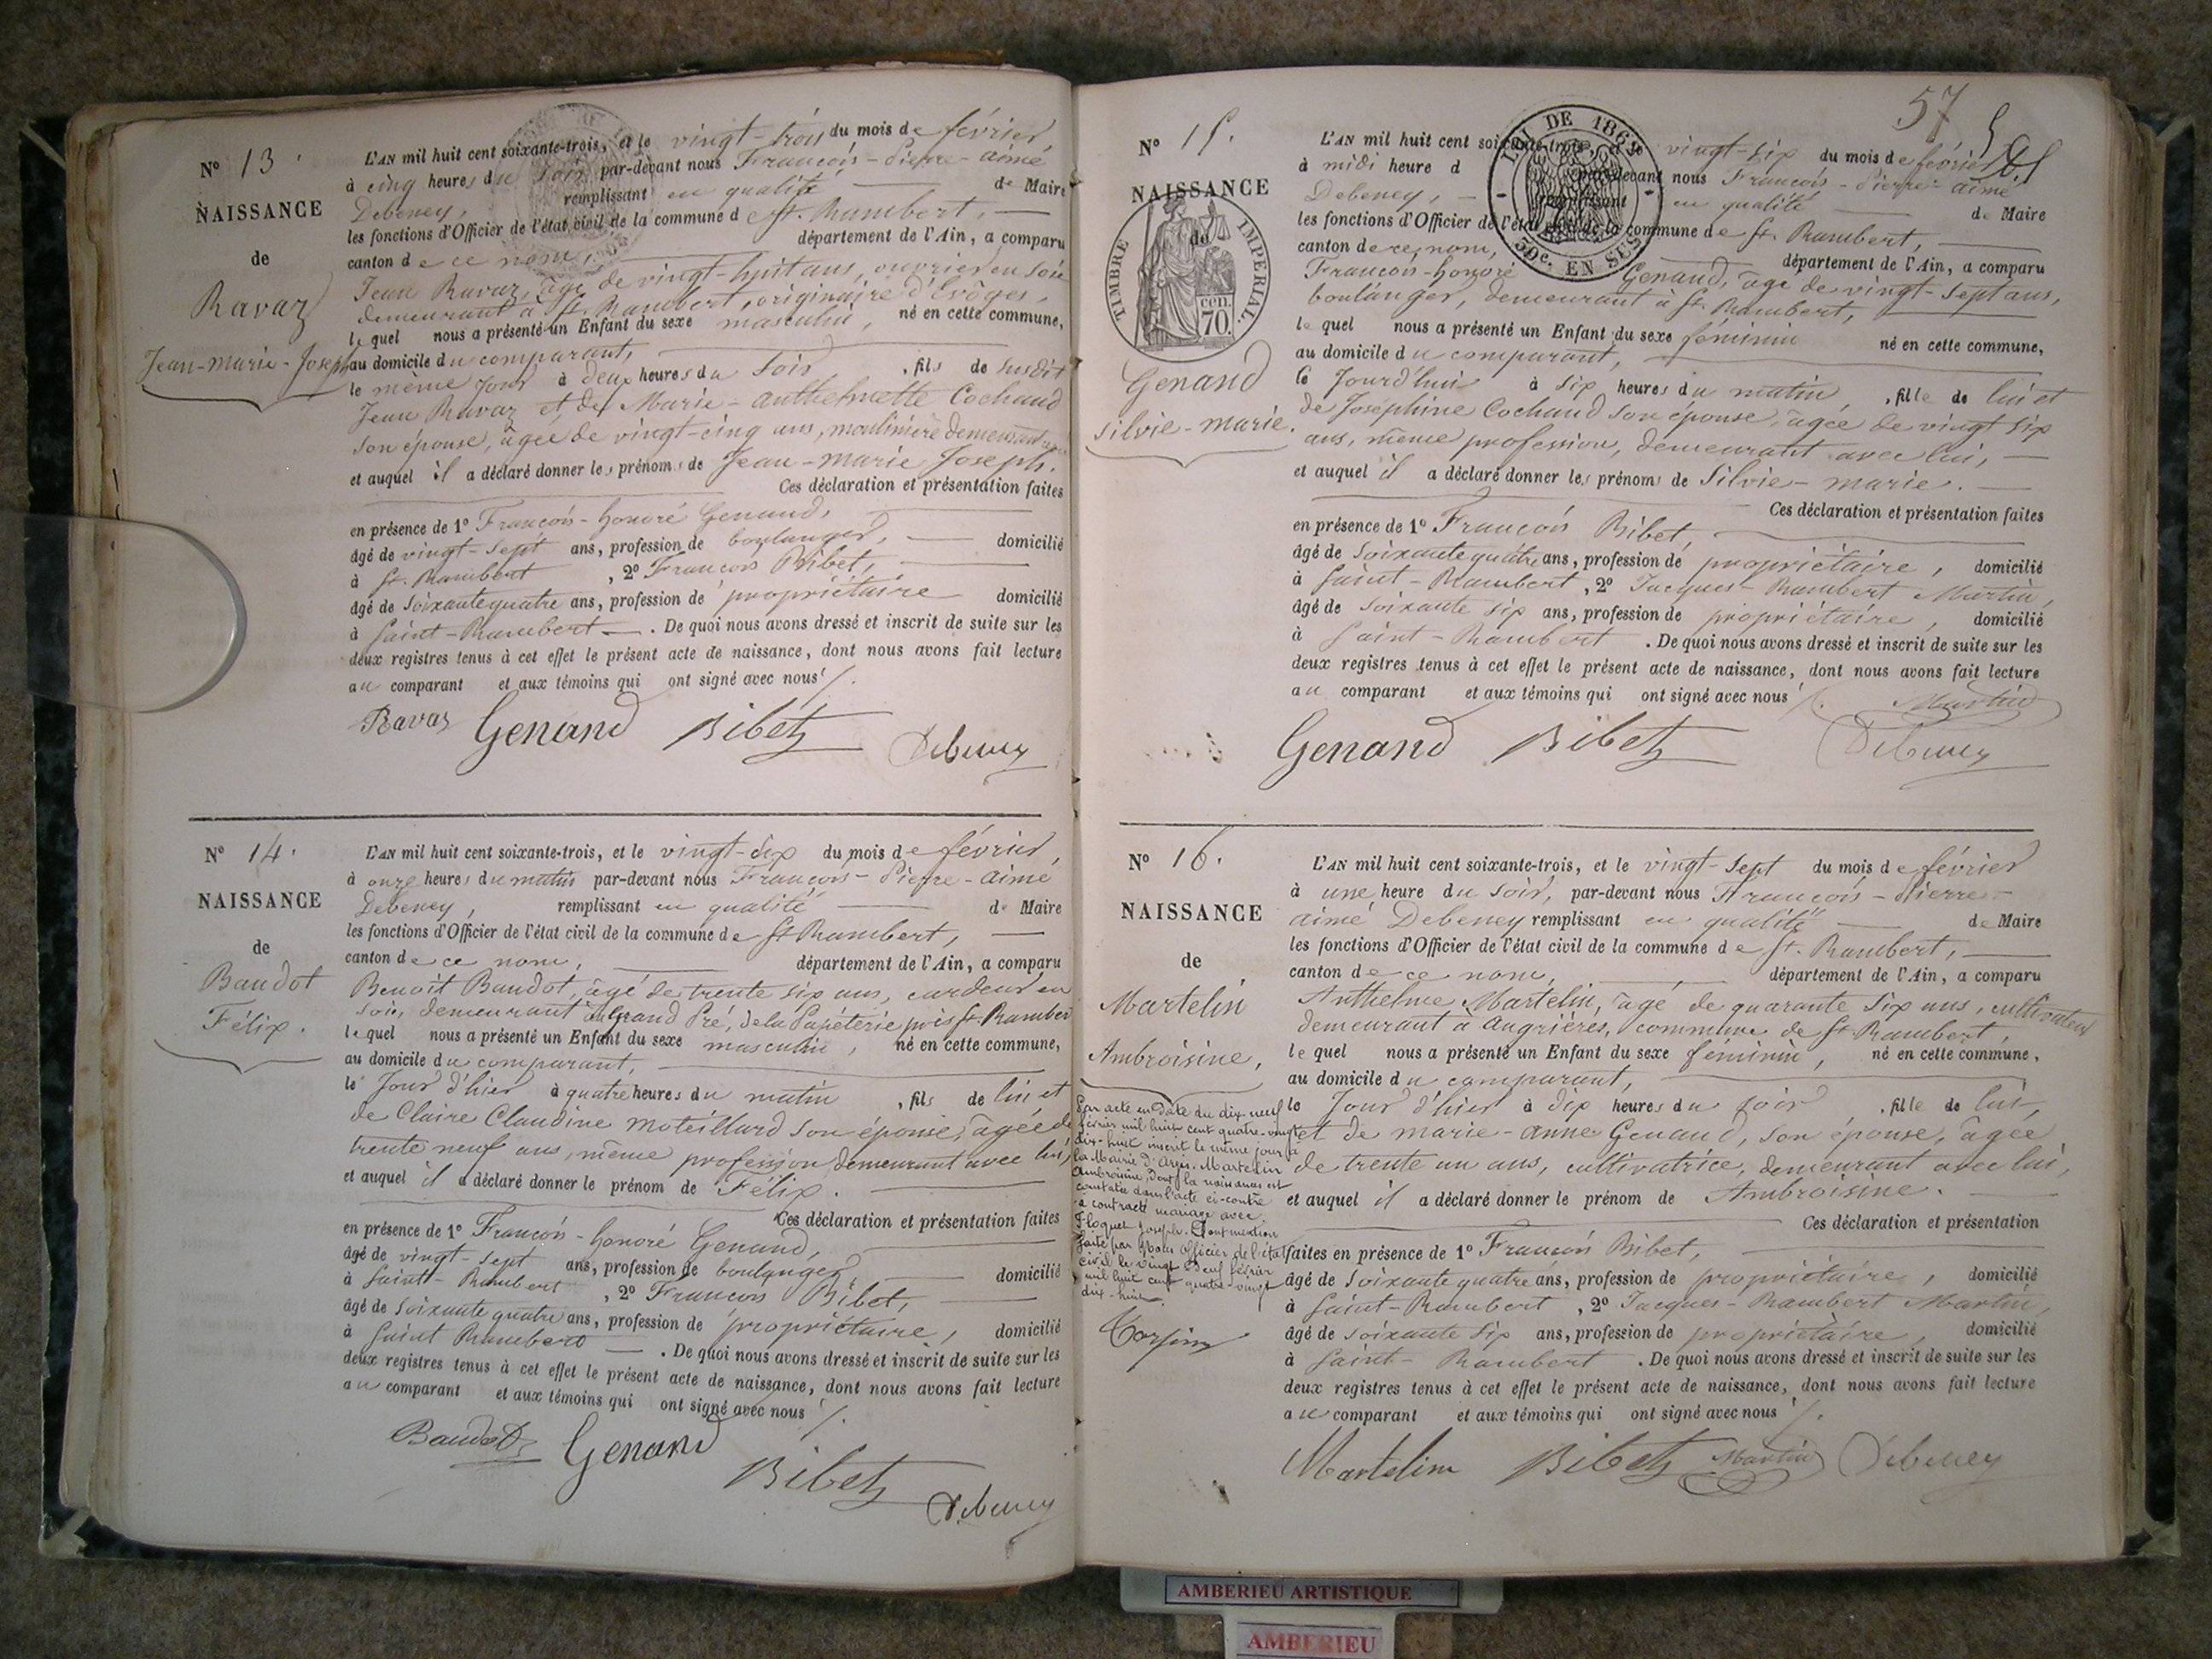 N° 13.
NAISSANCE
de
Ravaz
Jean-Marie-Joseph
L'AN mil huit cent soixante-trois, et le vingt-trois du mois de février
à cinq heures du soir par-devant nous François-Pierre-aimé
Debeney, remplissant en qualité de Maire
les fonctions d'Officier de l'état civil de la commune de St. Rambert,
canton de ce nom, département de l'Ain, a comparu
Jean Ravaz, âgé de vingt-huit ans, ouvrier en soie
demeurant à St. Rambert, originaire d'Evôges,
lequel nous a présenté un Enfant du sexe masculin, né en cette commune,
au domicile du comparant,
le même jour à deux heures du soir, fils de susdit
Jean Ravaz et de Marie-anthelmette Cochand
son épouse, âgée de vingt-cinq ans, moulinière demeurant
et auquel il a déclaré donner les prénoms de Jean-Marie Joseph.
Ces déclaration et présentation faites
en présence de 1° François-honoré Genand,
âgé de vingt-sept ans, profession de boulanger, domicilié
à St. Rambert, 2° François Bibet,
âgé de soixante quatre ans, profession de propriétaire domicilié
à Saint-Rambert. De quoi nous avons dressé et inscrit de suite sur les
deux registres tenus à cet effet le présent acte de naissance, dont nous avons fait lecture
au comparant et aux témoins qui ont signé avec nous
Ravaz Genand Bibet Debeney
N° 14.
NAISSANCE
de
Baudot
Félix.
L'AN mil huit cent soixante-trois, et le vingt-six du mois de février,
à onze heures du matin par-devant nous François-Pierre-aimé
Debeney, remplissant en qualité de Maire
les fonctions d'Officier de l'état civil de la commune de St Rambert,
canton de ce nom, département de l'Ain, a comparu
Benoit Baudot, âgé de trente six ans, cardeur en
soie, demeurant au grand Pré, de la Papéterie près St. Rambert
lequel nous a présenté un Enfant du sexe masculin, né en cette commune,
au domicile du comparant,
le Jour d'hier à quatre heures du matin, fils de lui et
de Claire Claudine Moteillard son épouse, âgée de
trente neuf ans, même profession demeurant avec lui,
et auquel il a déclaré donner le prénom de Félix.
Ces déclaration et présentation faites
en présence de 1° François-honoré Genand,
âgé de vingt-sept ans, profession de boulanger, domicilié
à Saint-Rambert, 2° François Bibet,
âgé de soixante quatre ans, profession de propriétaire, domicilié
à Saint Rambert. De quoi nous avons dressé et inscrit de suite sur les
deux registres tenus à cet effet le présent acte de naissance, dont nous avons fait lecture
au comparant et aux témoins qui ont signé avec nous
Baudot Genand
Bibet Debeney
57
N° 15.
NAISSANCE
de
TIMBRE IMPERIAL.
cen. 70.
LOI DE 1862
5De. EN SUS
Genand
Silvie-marie.
L'AN mil huit cent soixante-trois, et le vingt-six du mois de février
à midi heure d par-devant nous François-Pierre-aimé
Debeney, remplissant en qualité de Maire
les fonctions d'Officier de l'état civil de la commune de St. Rambert,
canton de ce nom, département de l'Ain, a comparu
François-honoré Genand, âgé de vingt-sept ans,
boulanger, demeurant à St. Rambert,
lequel nous a présenté un Enfant du sexe féminin né en cette commune,
au domicile du comparant,
le Jourd'hui à six heures du matin, fille de lui et
de Joséphine Cochand son épouse, âgée de vingt six
ans, même profession, demeurant avec lui,
et auquel il a déclaré donner les prénoms de Silvie-marie.
Ces déclaration et présentation faites
en présence de 1° François Bibet,
âgé de soixante quatre ans, profession de propriétaire, domicilié
à Saint-Rambert, 2° Jacques-Rambert Martin,
âgé de soixante six ans, profession de propriétaire, domicilié
à Saint-Rambert. De quoi nous avons dressé et inscrit de suite sur les
deux registres tenus à cet effet le présent acte de naissance, dont nous avons fait lecture
au comparant et aux témoins qui ont signé avec nous Martin
Genand Bibet Debeney
N° 16.
NAISSANCE
de
Martelin
Ambroisine,
Par acte en date du dix-neuf
février mil huit cent quatre-vingt
dix-huit inscrit le même jour à
la Mairie d'Argis, Martelin
Ambroisine, dont la naissance est
constatée dans l'acte ci-contre
a contracté mariage avec
Floquet Joseph. Dont mention
faite par Nous officier de l'état
civil le vingt neuf février
mil huit cent quatre-vingt
dix-huit.
L'AN mil huit cent soixante-trois, et le vingt-sept du mois de février
à une heure du soir, par-devant nous François-Pierre-
aimé Debeney remplissant en qualité de Maire
les fonctions d'Officier de l'état civil de la commune de St. Rambert,
canton de ce nom, département de l'Ain, a comparu
Anthelme Martelin, âgé de quarante six ans, cultivateur
demeurant à Angrières, commune de St. Rambert,
lequel nous a présenté un Enfant du sexe féminin, né en cette commune,
au domicile du comparant,
le Jour d'hier à dix heures du soir, fille de lui,
et de marie-anne Genand, son épouse, âgée
de trente un ans, cultivatrice, demeurant avec lui,
et auquel il a déclaré donner le prénom de Ambroisine.
Ces déclaration et présentation
faites en présence de 1° François Bibet,
âgé de soixante quatre ans, profession de propriétaire, domicilié
à Saint-Rambert, 2° Jacques-Rambert Martin,
âgé de soixante six ans, profession de propriétaire, domicilié
à Saint-Rambert. De quoi nous avons dressé et inscrit de suite sur les
deux registres tenus à cet effet le présent acte de naissance, dont nous avons fait lecture
au comparant et aux témoins qui ont signé avec nous
Martelin Bibet Martin Debeney
AMBERIEU ARTISTIQUE
AMBERIEU